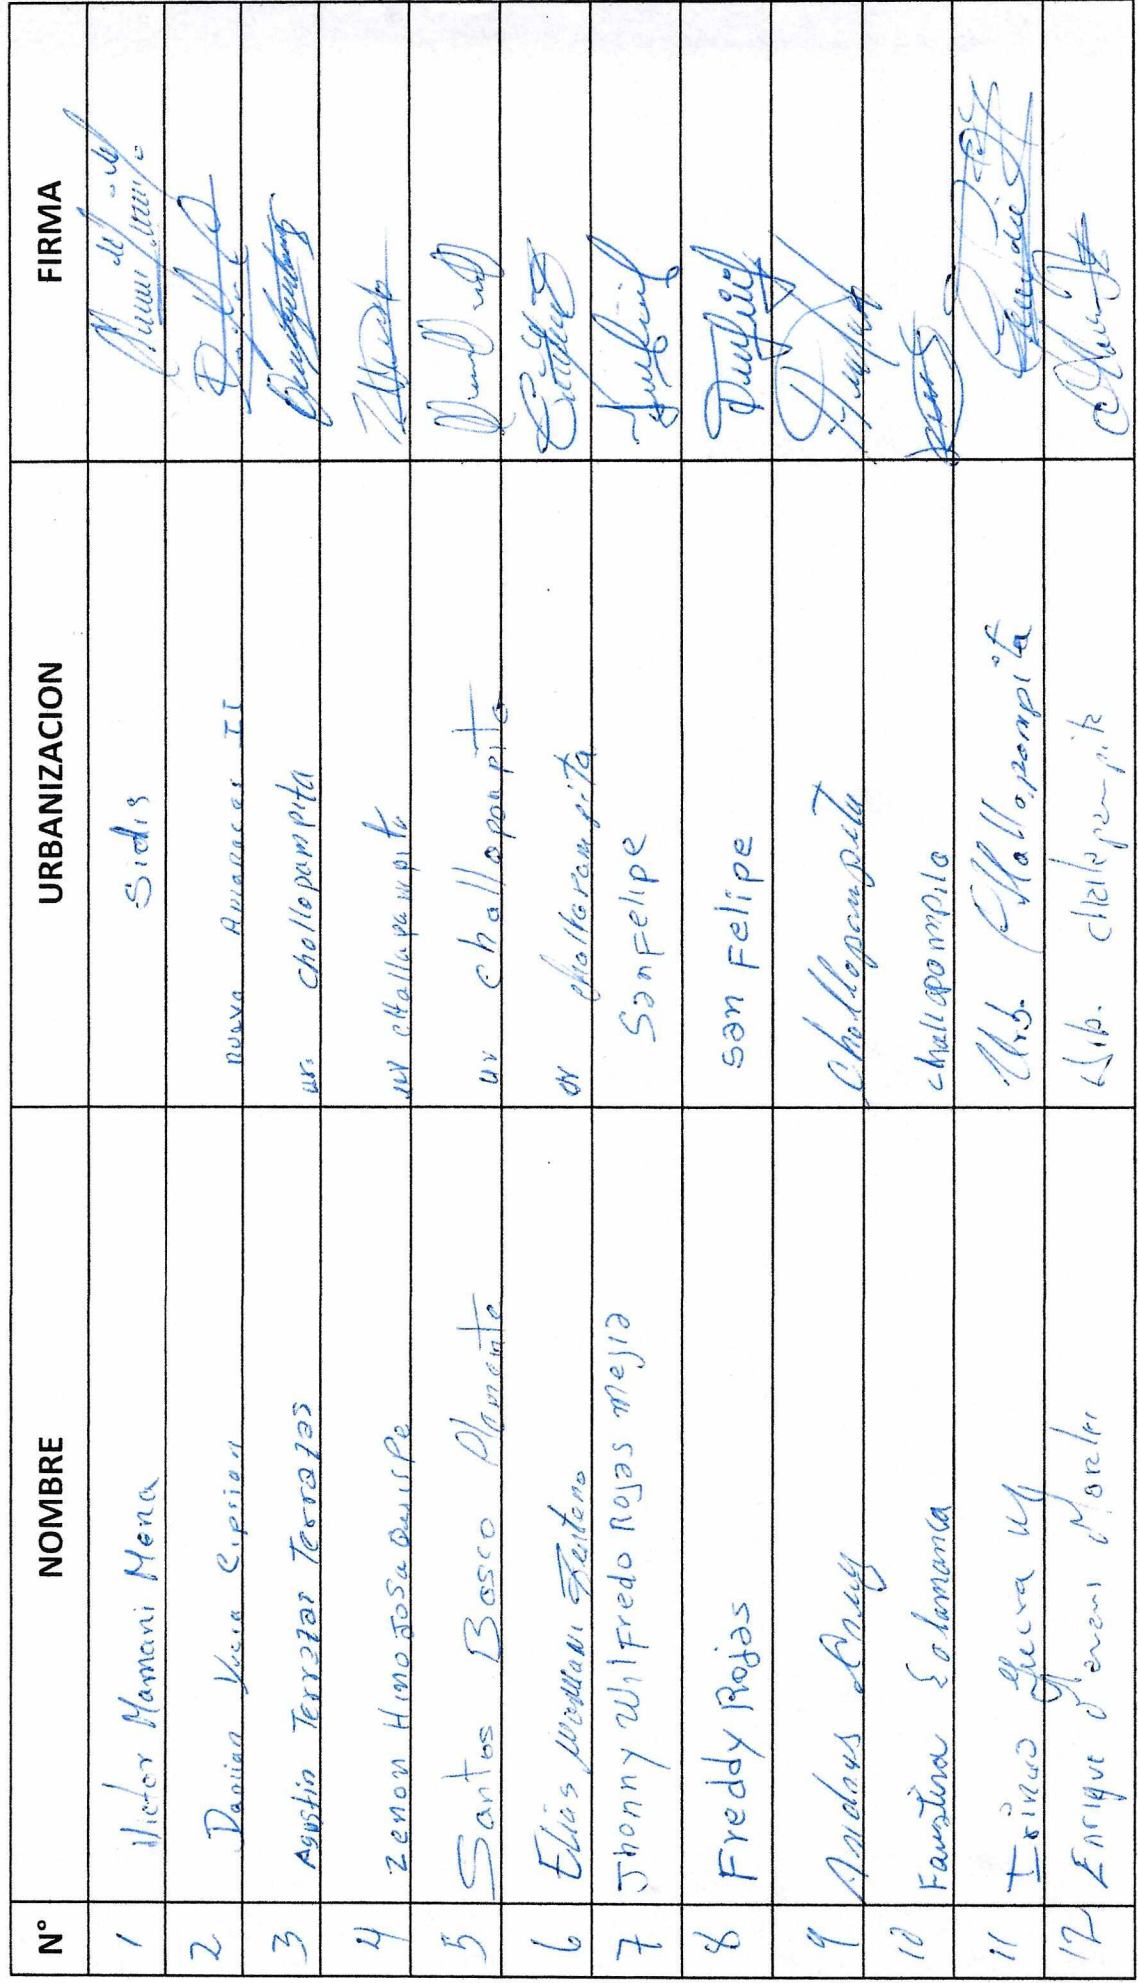 N° NOMBRE URBANIZACION FIRMA
1 Victor Mamani Mena Sidis
2 Damian Ciprian nueva II
3 Agustin Terrazas Terrazas ur. challapampita
4 Zenon HinoJosa Quispe ur cHallapampita
5 Santos Basco challapampita
6 Elias Mamani Zenteno ur challapampita
7 Jhonny WilFredo Rojas Mejia SanFelipe
8 Freddy Rojas san Felipe
9 Andres Challapampita
10 Faustina Salamanca challapampita
11 Irineo Urb. Challapampita
12 Enrique Mamani Morales Urb. challapampita